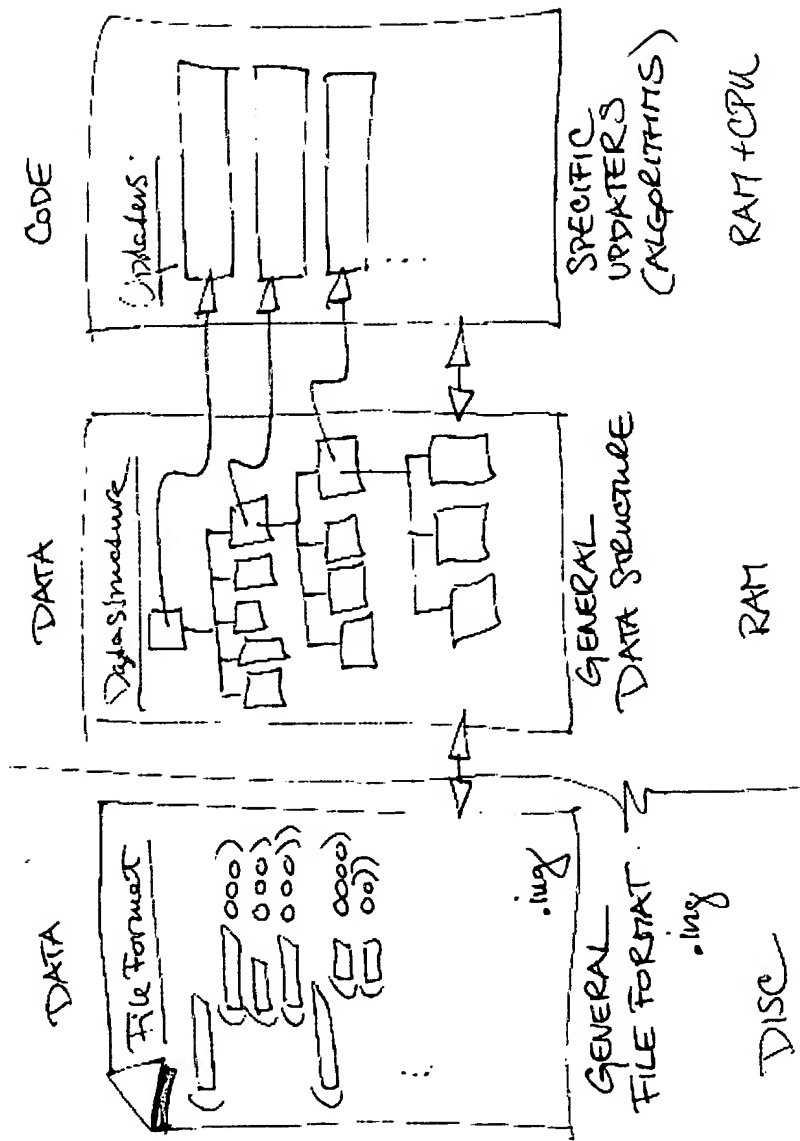 DATA
File Format
( ooo)
( ooo)
( ooo))
( oooo)
( oo))
...
.ing
GENERAL
FILE FORMAT
.ing
DISC
DATA
Datastructure
GENERAL
DATA STRUCTURE
RAM
CODE
Updaters.
...
SPECIFIC
UPDATERS
(ALGORITHMS)
RAM + CPU